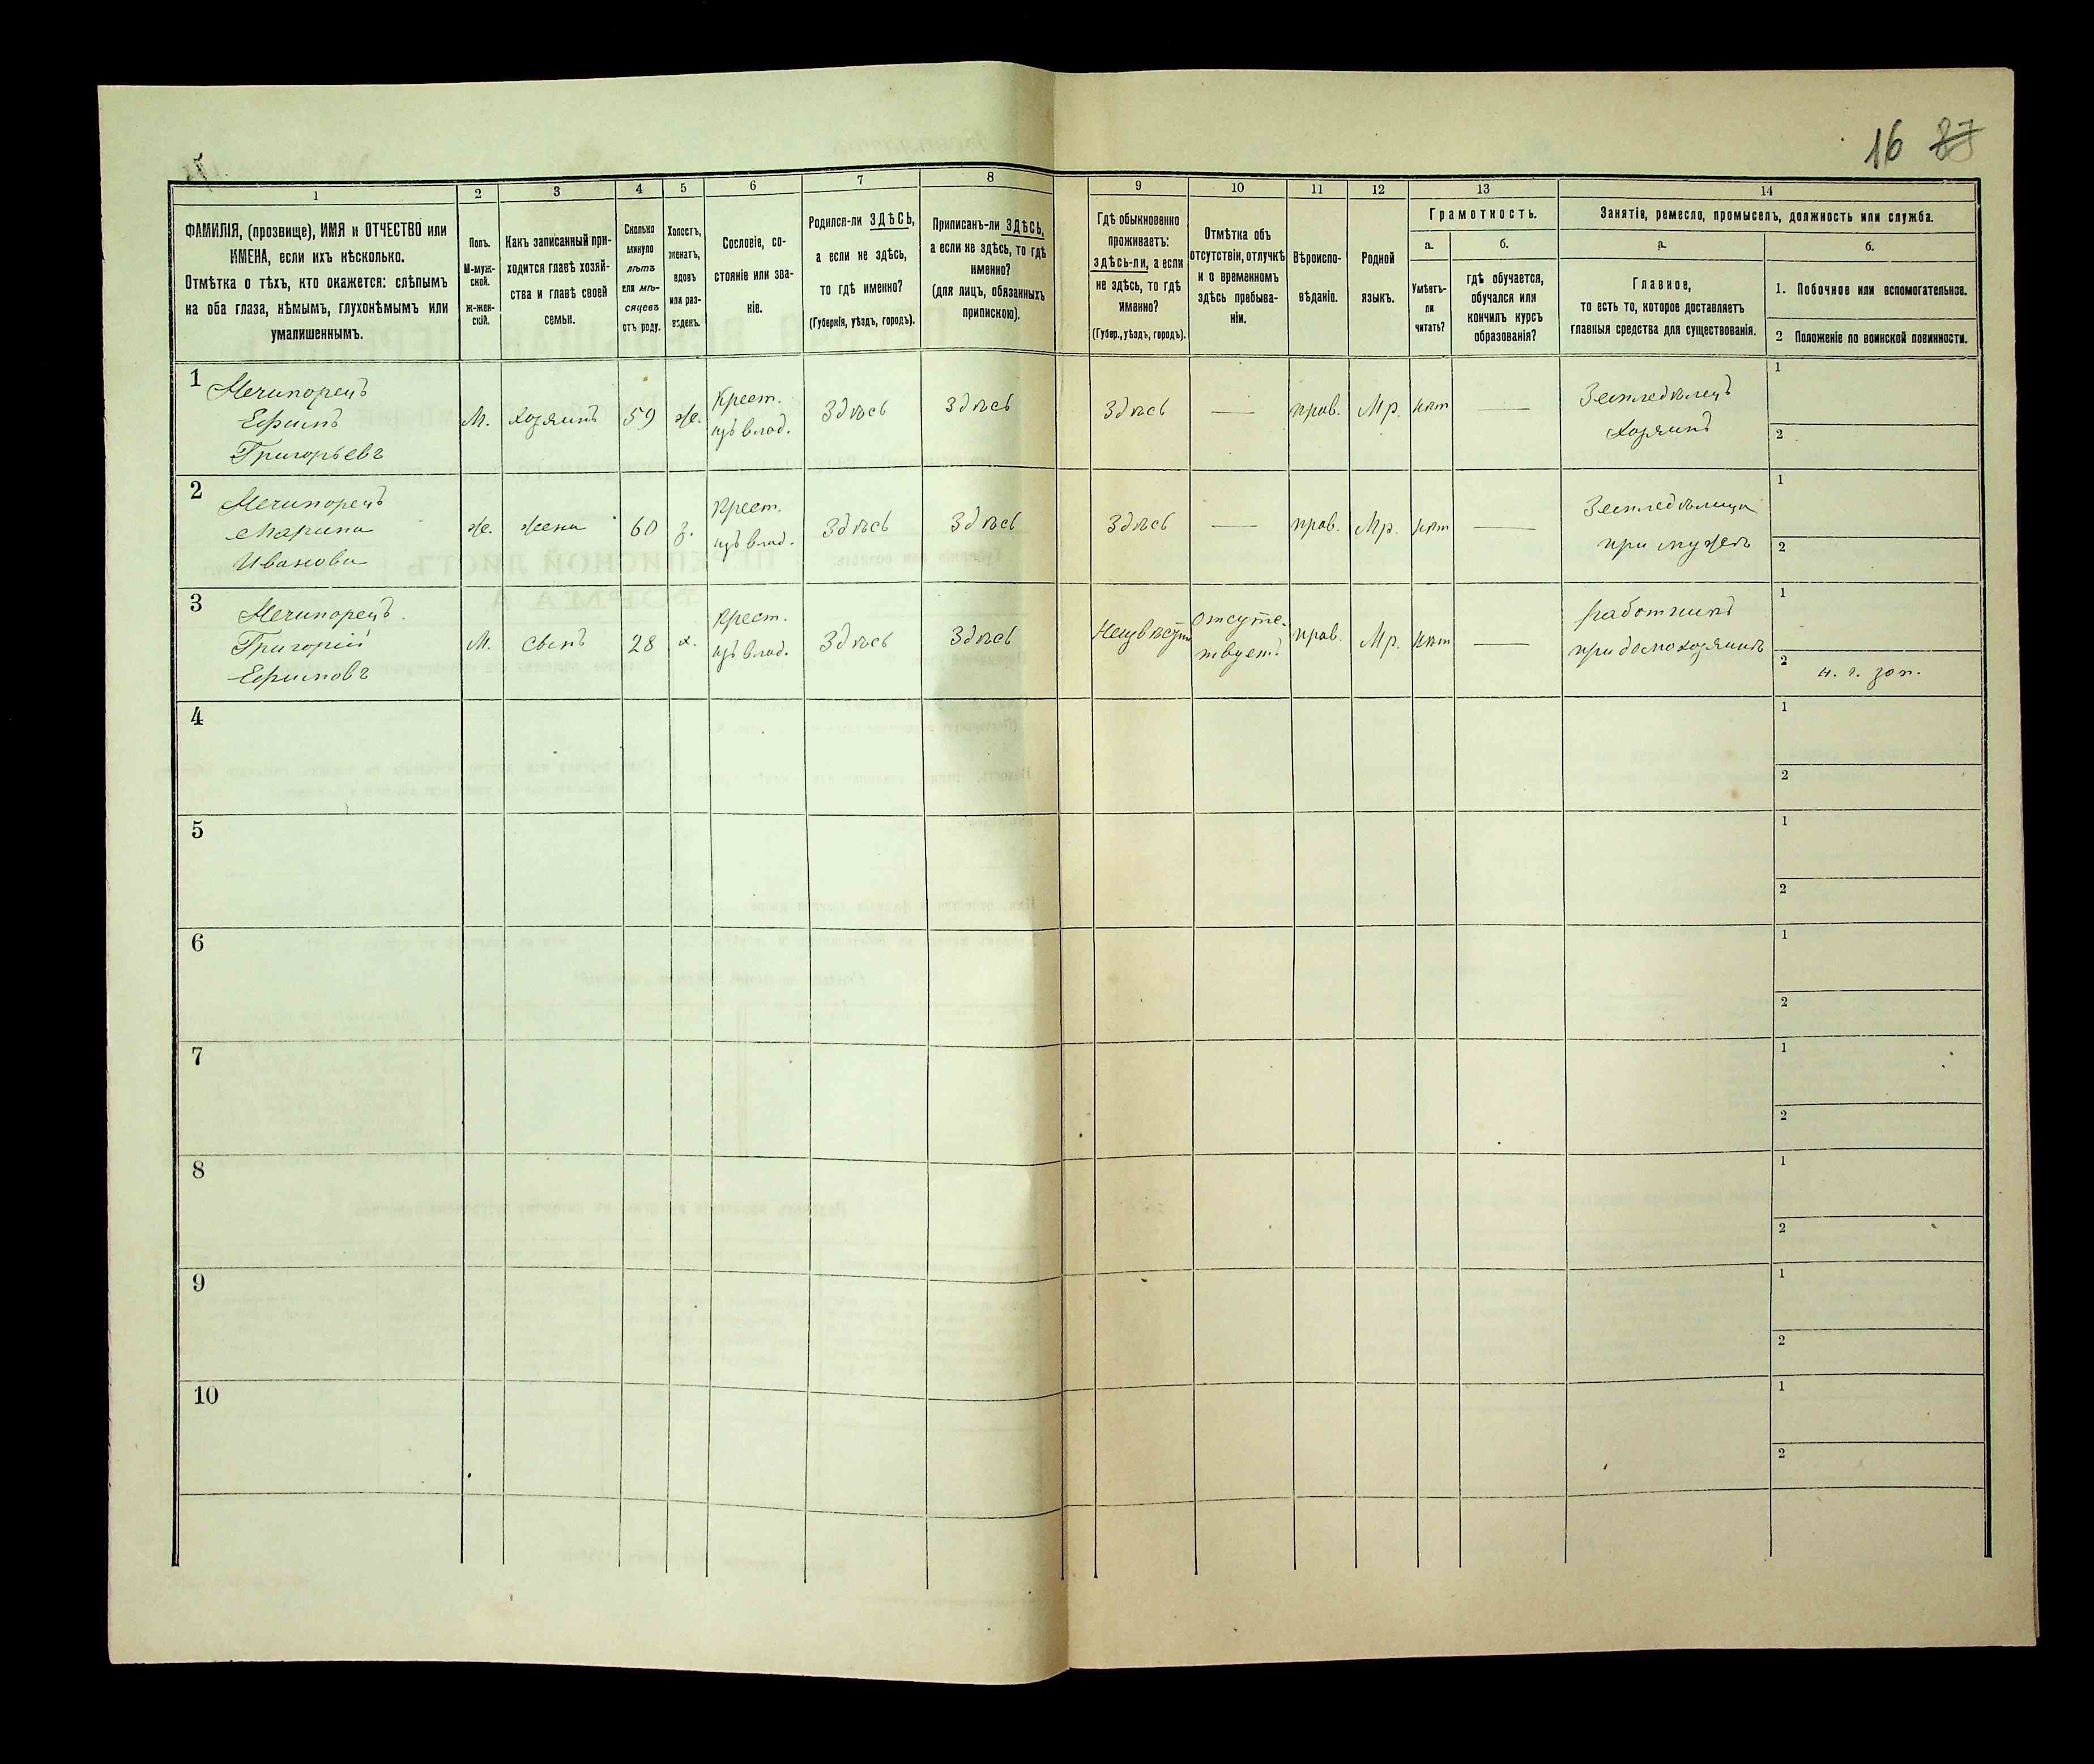 16 87
1
2
3
4
5
6
7
8
9
10
11
12
13
14
ФАМИЛІЯ, (прозвище), ИМЯ и ОТЧЕСТВО или
ИМЕНА, если ихъ нѣсколько.
Отмѣтка о тѣхъ, кто окажется: слѣпымъ
на оба глаза, нѣмымъ, глухонѣмымъ или
умалишеннымъ.
Полъ.
М-муж-
ской.
ж-жен-
скій.
Какъ записанный при-
ходится главѣ хозяй-
ства и главѣ своей
семьи.
Сколько
минуло
лѣтъ
или мѣ-
сяцевъ
отъ роду.
Холостъ,
женатъ,
вдовъ
или раз-
веденъ.
Сословіе, со-
стояніе или зва-
ніе.
Родился-ли ЗДѢСЬ,
а если не здѣсь,
то гдѣ именно?
(Губернія, уѣздъ, городъ).
Приписанъ-ли ЗДѢСЬ,
а если не здѣсь, то гдѣ
именно?
(для лицъ, обязанныхъ
припискою).
Гдѣ обыкновенно
проживаетъ:
здѣсь-ли, а если
не здѣсь, то гдѣ
именно?
(Губер., уѣздъ, городъ).
Отмѣтка объ
отсутствіи, отлучкѣ
и о временномъ
здѣсь пребыва-
ніи.
Вѣроиспо-
вѣданіе.
Родной
языкъ.
Грамотность.
а.
Умѣетъ-
ли
читать?
б.
гдѣ обучается,
обучался или
кончилъ курсъ
образованія?
Занятіе, ремесло, промыселъ, должность или служба.
а.
Главное,
то есть то, которое доставляетъ
главныя средства для существованія.
б.
1. Побочное или вспомогательное.
2 Положеніе по воинской повинности.
1 Нечипорецъ
Ефимъ
Григорьевъ
М.
хозяинъ
59
Же.
Крест.
изъ влад.
Здѣсь
Здѣсь
Здѣсь
—
прав.
Мр.
нѣт
—
Земледѣлецъ
хозяинъ
1
2
2 Нечипорецъ
Марина
Иванова
Же.
жена
60
з.
Крест.
изъ влад.
Здѣсь
Здѣсь
Здѣсь
—
прав.
Мр.
нѣт
—
Земледѣлица
при мужѣ
1
2
3 Нечипорецъ
Григорій
Ефимовъ
М.
сынъ
28
х.
Крест.
изъ влад.
Здѣсь
Здѣсь
Неизвѣстно
отсутс-
твуетъ
прав.
Мр.
нѣт
—
работникъ
при домохозяинѣ
1
2 н. г. зап.
4
1
2
5
1
2
6
1
2
7
1
2
8
1
2
9
1
2
10
1
2